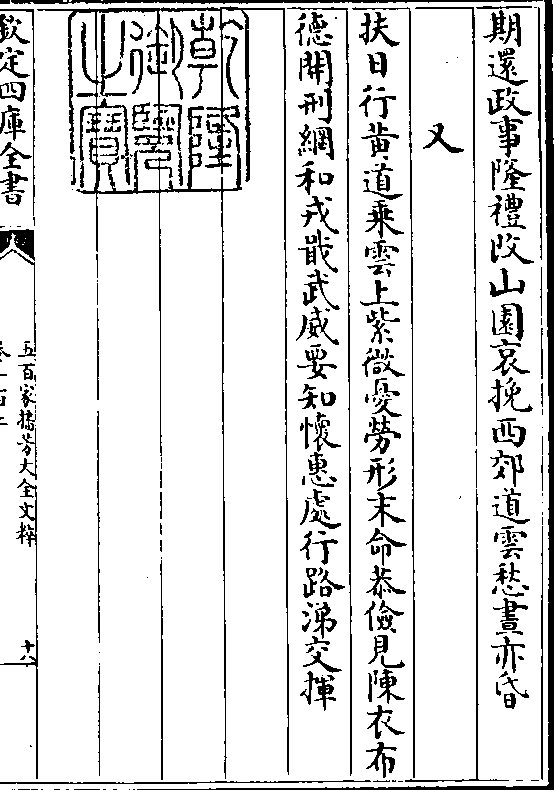 期還政事隆禮改山園哀挽西郊道雲愁晝亦昏
又
扶日行黃道乗雲上紫微憂勞形末命恭儉見陳衣布
德開刑網和戎戢武威要知懷惠處行路涕交揮
乾隆
御覽
之寶
欽定四庫全書
五百家播芳大全文粹
十八